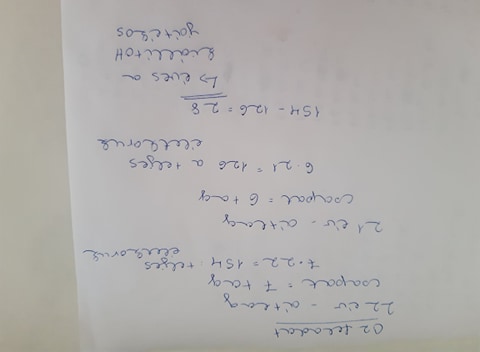 02 feladat
22 év - átlag
csapat = 7 tag
7·22 = 154 teljes
életkoruk
21 év - átlag
csapat = 6 tag
6·21 = 126 a teljes
életkoruk
154 - 126 = 28
↳ éves a
kiállított
játékos